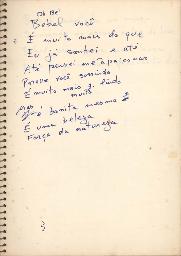 Bebel você
É muito mais do que
Eu já sonhei e até
Até pensei me apaixonar
Porque você sorrindo
É muito mais lindo
muito
é bonita mesmo
É uma beleza
Força da natureza